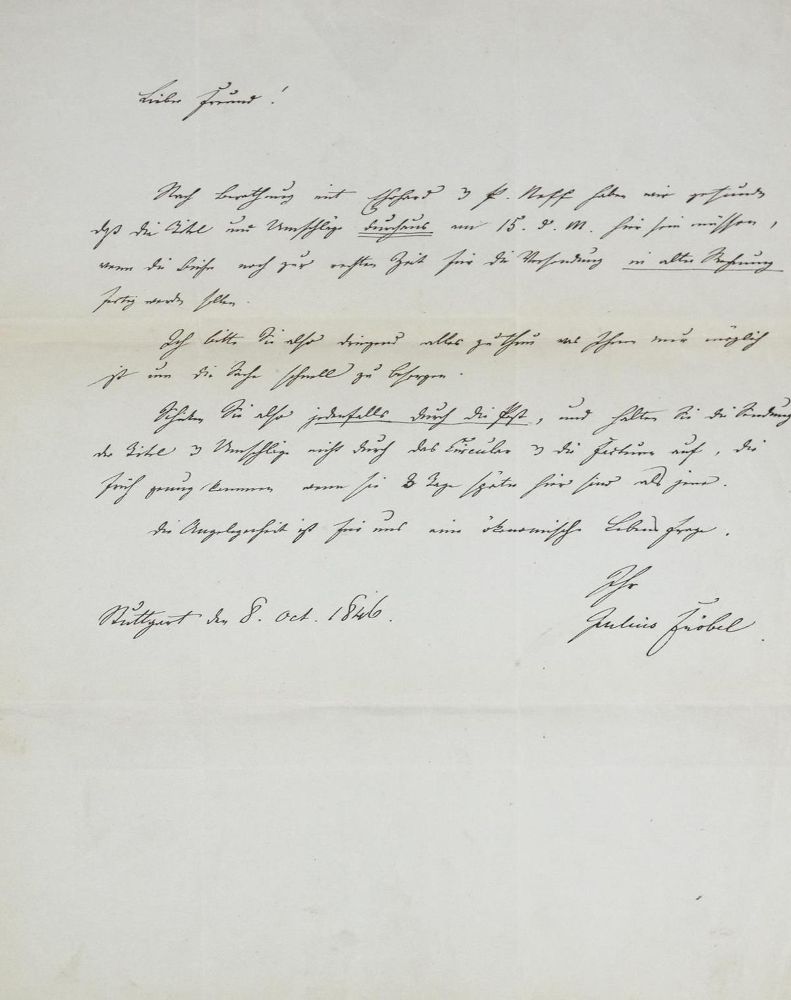 Lieber Freund!
Nach Berathung mit Ehrhard & P. Neff haben wir gefunden
daß die Titel und Umschläge durchaus am 15. d. M. hier sein müssen,
wenn die Bücher noch zur rechten Zeit für die Versendung in alter Rechnung
fertig werden sollen.
Ich bitte Sie also dringend alles zu thun was Ihnen nur möglich
ist um die Sache schnell zu besorgen.
Schicken Sie also jedenfalls durch die Post, und halten Sie die Sendung
der Titel & Umschläge nicht durch das Circular & die Facturen auf, die
früh genug kommen wenn sie 8 Tage später hier sind als jene.
Die Angelegenheit ist für uns eine ökonomische Lebensfrage.
Ihr
Stuttgart den 8. Oct. 1846.
Julius Fröbel.